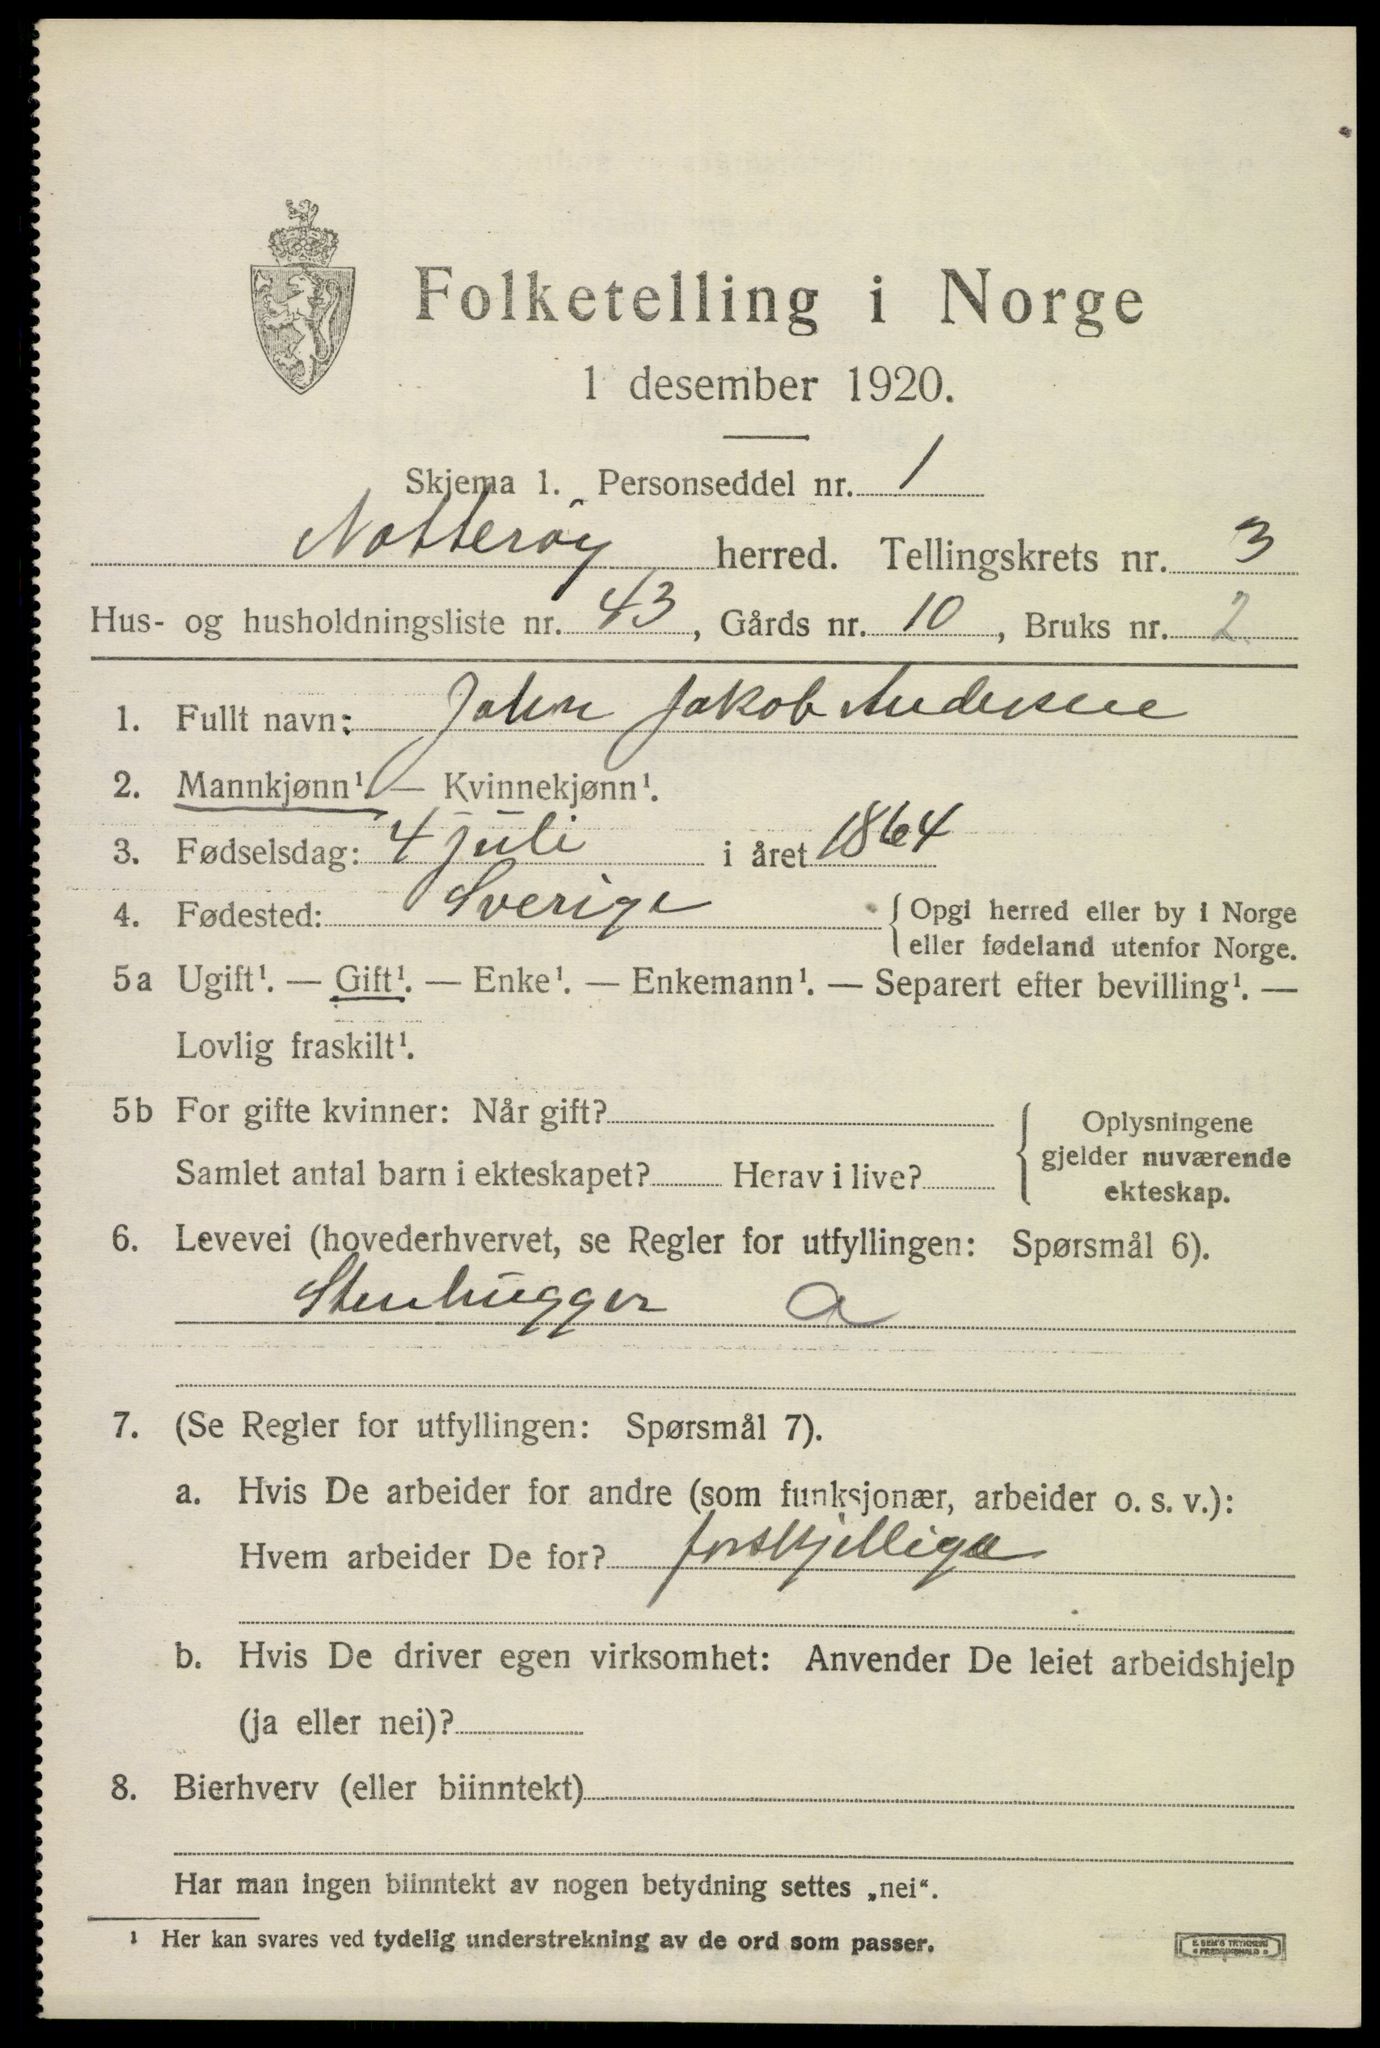 Folketelling i Norge
1 desember 1920.
Skjema 1. Personseddel nr. 1
Nøtterøy herred. Tellingskrets nr. 3
Hus- og husholdningsliste nr. 43, Gårds nr. 10, Bruks nr. 2
1. Fullt navn: John Jakob Andersen
2. Mannkjønn¹. — Kvinnekjønn¹.
3. Fødselsdag: 4 juli i året 1864
4. Fødested: Sverige { Opgi herred eller by i Norge
eller fødeland utenfor Norge.
5a Ugift¹. — Gift¹. — Enke¹. — Enkemann¹. — Separert efter bevilling¹. —
Lovlig fraskilt¹.
5b For gifte kvinner: Når gift? { Oplysningene
gjelder nuværende
ekteskap.
Samlet antal barn i ekteskapet? Herav i live?
6. Levevei (hovederhvervet, se Regler for utfyllingen: Spørsmål 6).
Stenhugger a
7. (Se Regler for utfyllingen: Spørsmål 7).
a. Hvis De arbeider for andre (som funksjonær, arbeider o. s. v.):
Hvem arbeider De for? forskjellige
b. Hvis De driver egen virksomhet: Anvender De leiet arbeidshjelp
(ja eller nei)?
8. Bierhverv (eller biinntekt)
Har man ingen biinntekt av nogen betydning settes „nei“.
¹ Her kan svares ved tydelig understrekning av de ord som passer.
E. SEM'S TRYKKERI
FREDRIKSHALD